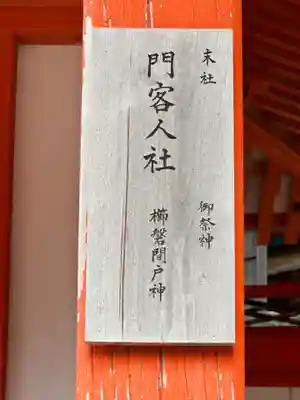 末社
門客人社
御祭神
櫛磐間戸神